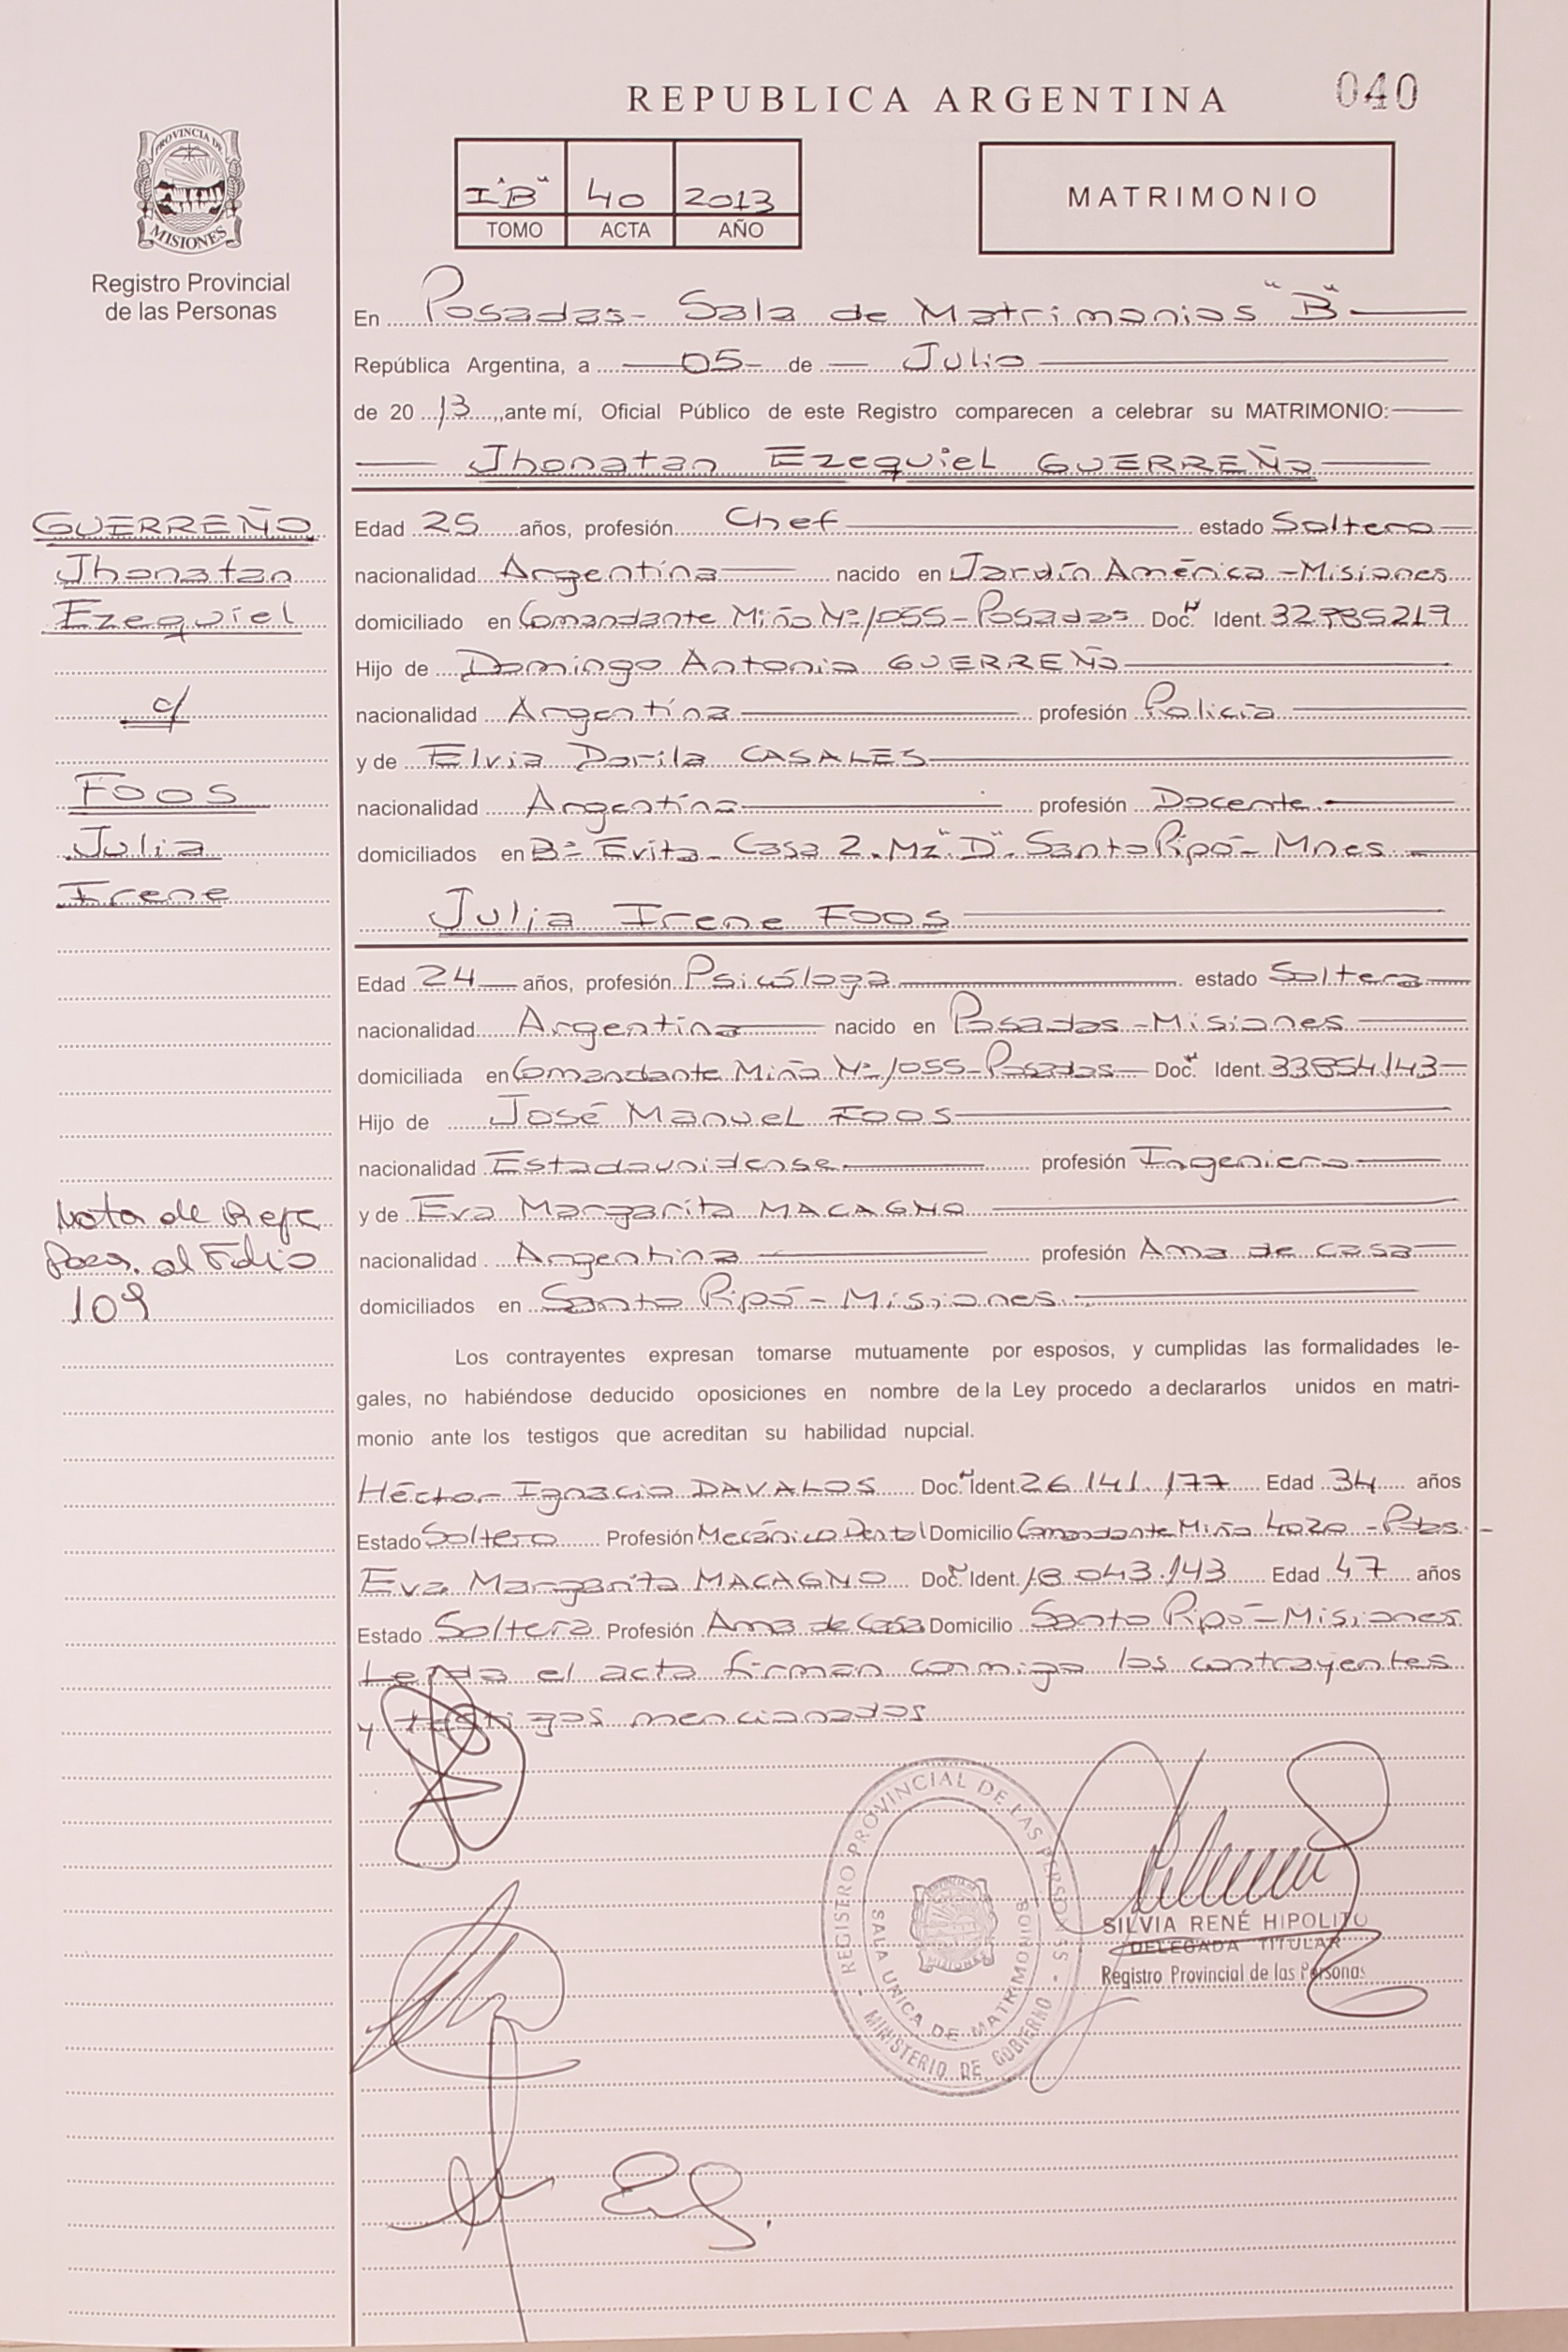 REPUBLICA ARGENTINA
040
PROVINCIA DE
MISIONES
Registro Provincial
de las Personas
I "B" 40 2013
TOMO ACTA AÑO
MATRIMONIO
En Posadas - Sala de Matrimonios "B"
República Argentina, a 05 de Julio
de 20 13, ante mí, Oficial Público de este Registro comparecen a celebrar su MATRIMONIO:
Jhonatan Ezequiel GUERREÑO
GUERREÑO
Jhonatan
Ezequiel
c/
FOOS
Julia
Irene
Edad 25 años, profesión Chef estado Soltero
nacionalidad Argentina nacido en Jardín América - Misiones
domiciliado en Comandante Miño Nº 1055 - Posadas Doc. Ident. 32985219
Hijo de Domingo Antonio GUERREÑO
nacionalidad Argentina profesión Policía
y de Elvia Dorila CASALES
nacionalidad Argentina profesión Docente
domiciliados en Bº Evita - Casa 2 - Mz "D" - Santo Pipó - Mnes
Julia Irene FOOS
Edad 24 años, profesión Psicóloga estado Soltera
nacionalidad Argentina nacido en Posadas - Misiones
domiciliada en Comandante Miño Nº 1055 - Posadas Doc. Ident. 33854143
Hijo de José Manuel FOOS
nacionalidad Estadounidense profesión Ingeniero
y de Eva Margarita MACAGNO
nacionalidad Argentina profesión Ama de casa
domiciliados en Santo Pipó - Misiones
Nota de Refe
al Folio
109
Los contrayentes expresan tomarse mutuamente por esposos, y cumplidas las formalidades le-
gales, no habiéndose deducido oposiciones en nombre de la Ley procedo a declararlos unidos en matri-
monio ante los testigos que acreditan su habilidad nupcial.
Héctor Ignacio DAVALOS Doc. Ident. 26.141.177 Edad 34 años
Estado Soltero Profesión Mecánico Dental Domicilio Comandante Miño 4020 - Pdas.-
Eva Margarita MACAGNO Doc. Ident. 18.043.143 Edad 47 años
Estado Soltera Profesión Ama de Casa Domicilio Santo Pipó - Misiones
Leída el acta firman conmigo los contrayentes
y testigos mencionados
REGISTRO PROVINCIAL DE LAS PERSONAS - MINISTERIO DE GOBIERNO
SALA UNICA DE MATRIMONIOS
SILVIA RENÉ HIPOLITO
DELEGADA TITULAR
Registro Provincial de las Personas